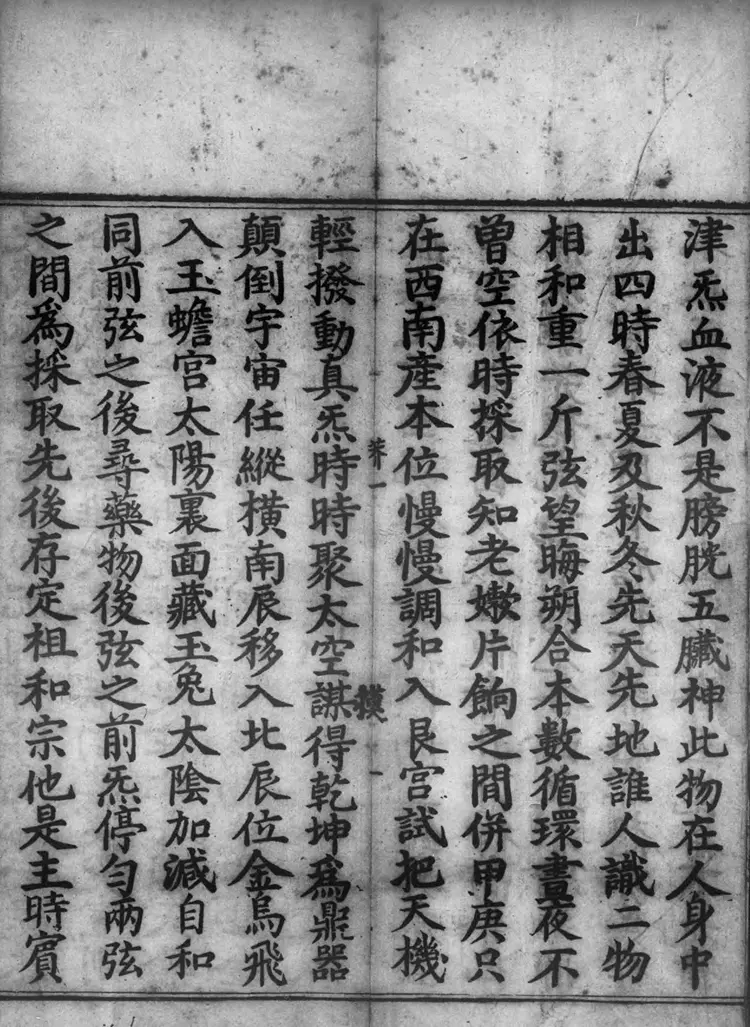 津炁血液不是膀胱五臟神此物在人身中
出四時春夏及秋冬先天先地誰人識二物
相和重一斤弦望晦朔合本數循環晝夜不
曽空依時採取知老嫰片餉之間併甲庚只
在西南産本位慢慢調和入艮宫試把天機
輕撥動真炁時時聚太空謀得乾坤爲鼎器
顛倒宇宙任縱横南辰移入北辰位金烏飛
入玉蟾宫太陽裏面藏玉兔太陰加減自和
同前弦之後尋藥物後弦之前炁停匀兩弦
之間爲採取先後存定祖和宗他是主時賓